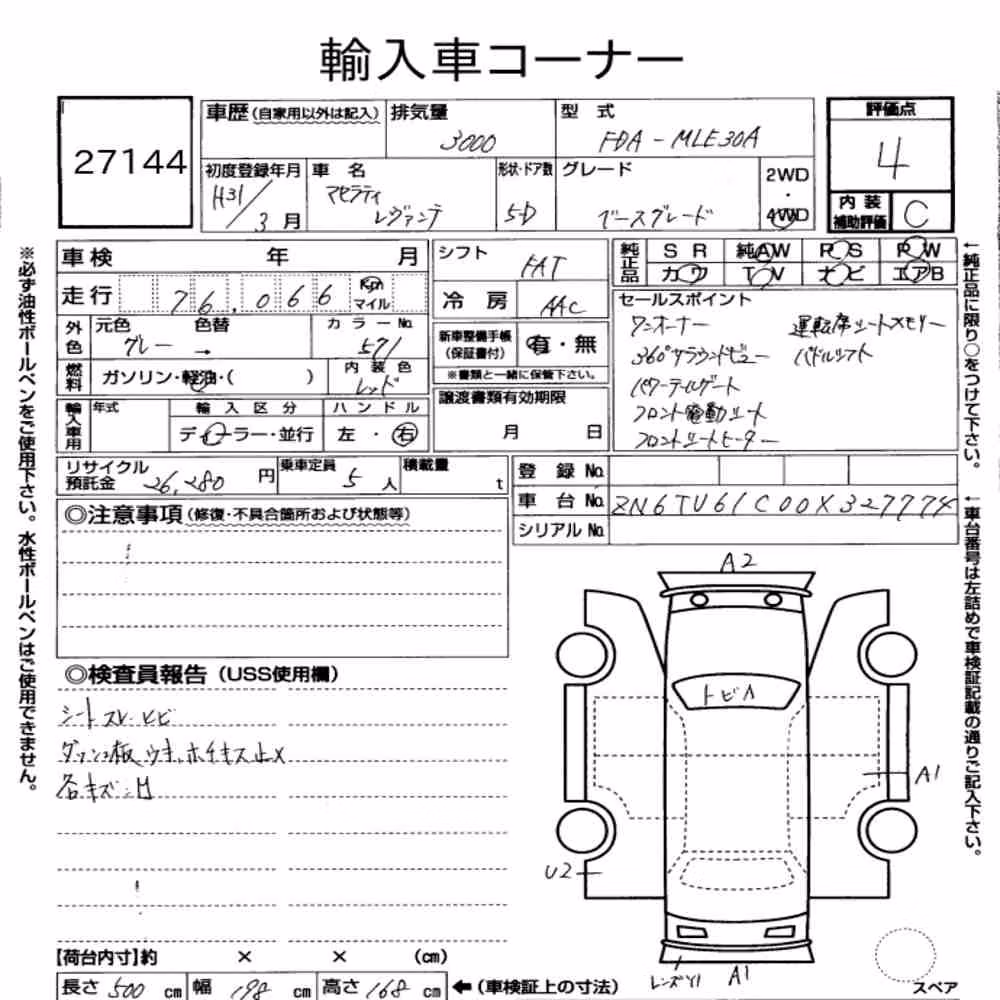 輸入車コーナー
27144
車歴(自家用以外は記入)
排気量
3000
型 式
FDA-MLE30A
評価点
4
内装補助評価
C
初度登録年月
H31/3月
車 名
マセラティ
レヴァンテ
形状・ドア数
5D
グレード
ベースグレード
2WD
・
4WD
車検 年 月
走行 76,066 Km マイル
外色
元色 色替
グレー →
カラーNo.
571
燃料
ガソリン・軽油・( )
内装色
レッド
輸入車用
年式
輸入区分
ディーラー・並行
ハンドル
左・右
シフト
FAT
冷房
AAC
新車整備手帳(保証書付)
有・無
※書類と一緒に保管下さい。
譲渡書類有効期限
月 日
純正品
SR 純AW PS PW
カワ TV ナビ エアB
セールスポイント
ワンオーナー 運転席シートメモリー
360°サラウンドビュー パドルシフト
パワーテールゲート
フロント電動シート
フロントシートヒーター
リサイクル預託金
26,280円
乗車定員
5人
積載量
t
登録No.
車台No. ZN6TU61C00X327774
シリアルNo.
◎注意事項(修復・不具合箇所および状態等)
◎検査員報告(USS使用欄)
シートスレ、ヒビ
ダッシュ板ウキ、ホイキズ止メ
各キズ:凹
A2
トビA
A1
U2
A1
スペア
【荷台内寸】約 × × (cm)
長さ 500 cm 幅 198 cm 高さ 168 cm
←(車検証上の寸法)
※必ず油性ボールペンをご使用下さい。水性ボールペンはご使用できません。
←純正品に限り○をつけて下さい。
←車台番号は左詰めで車検証記載の通りご記入下さい。